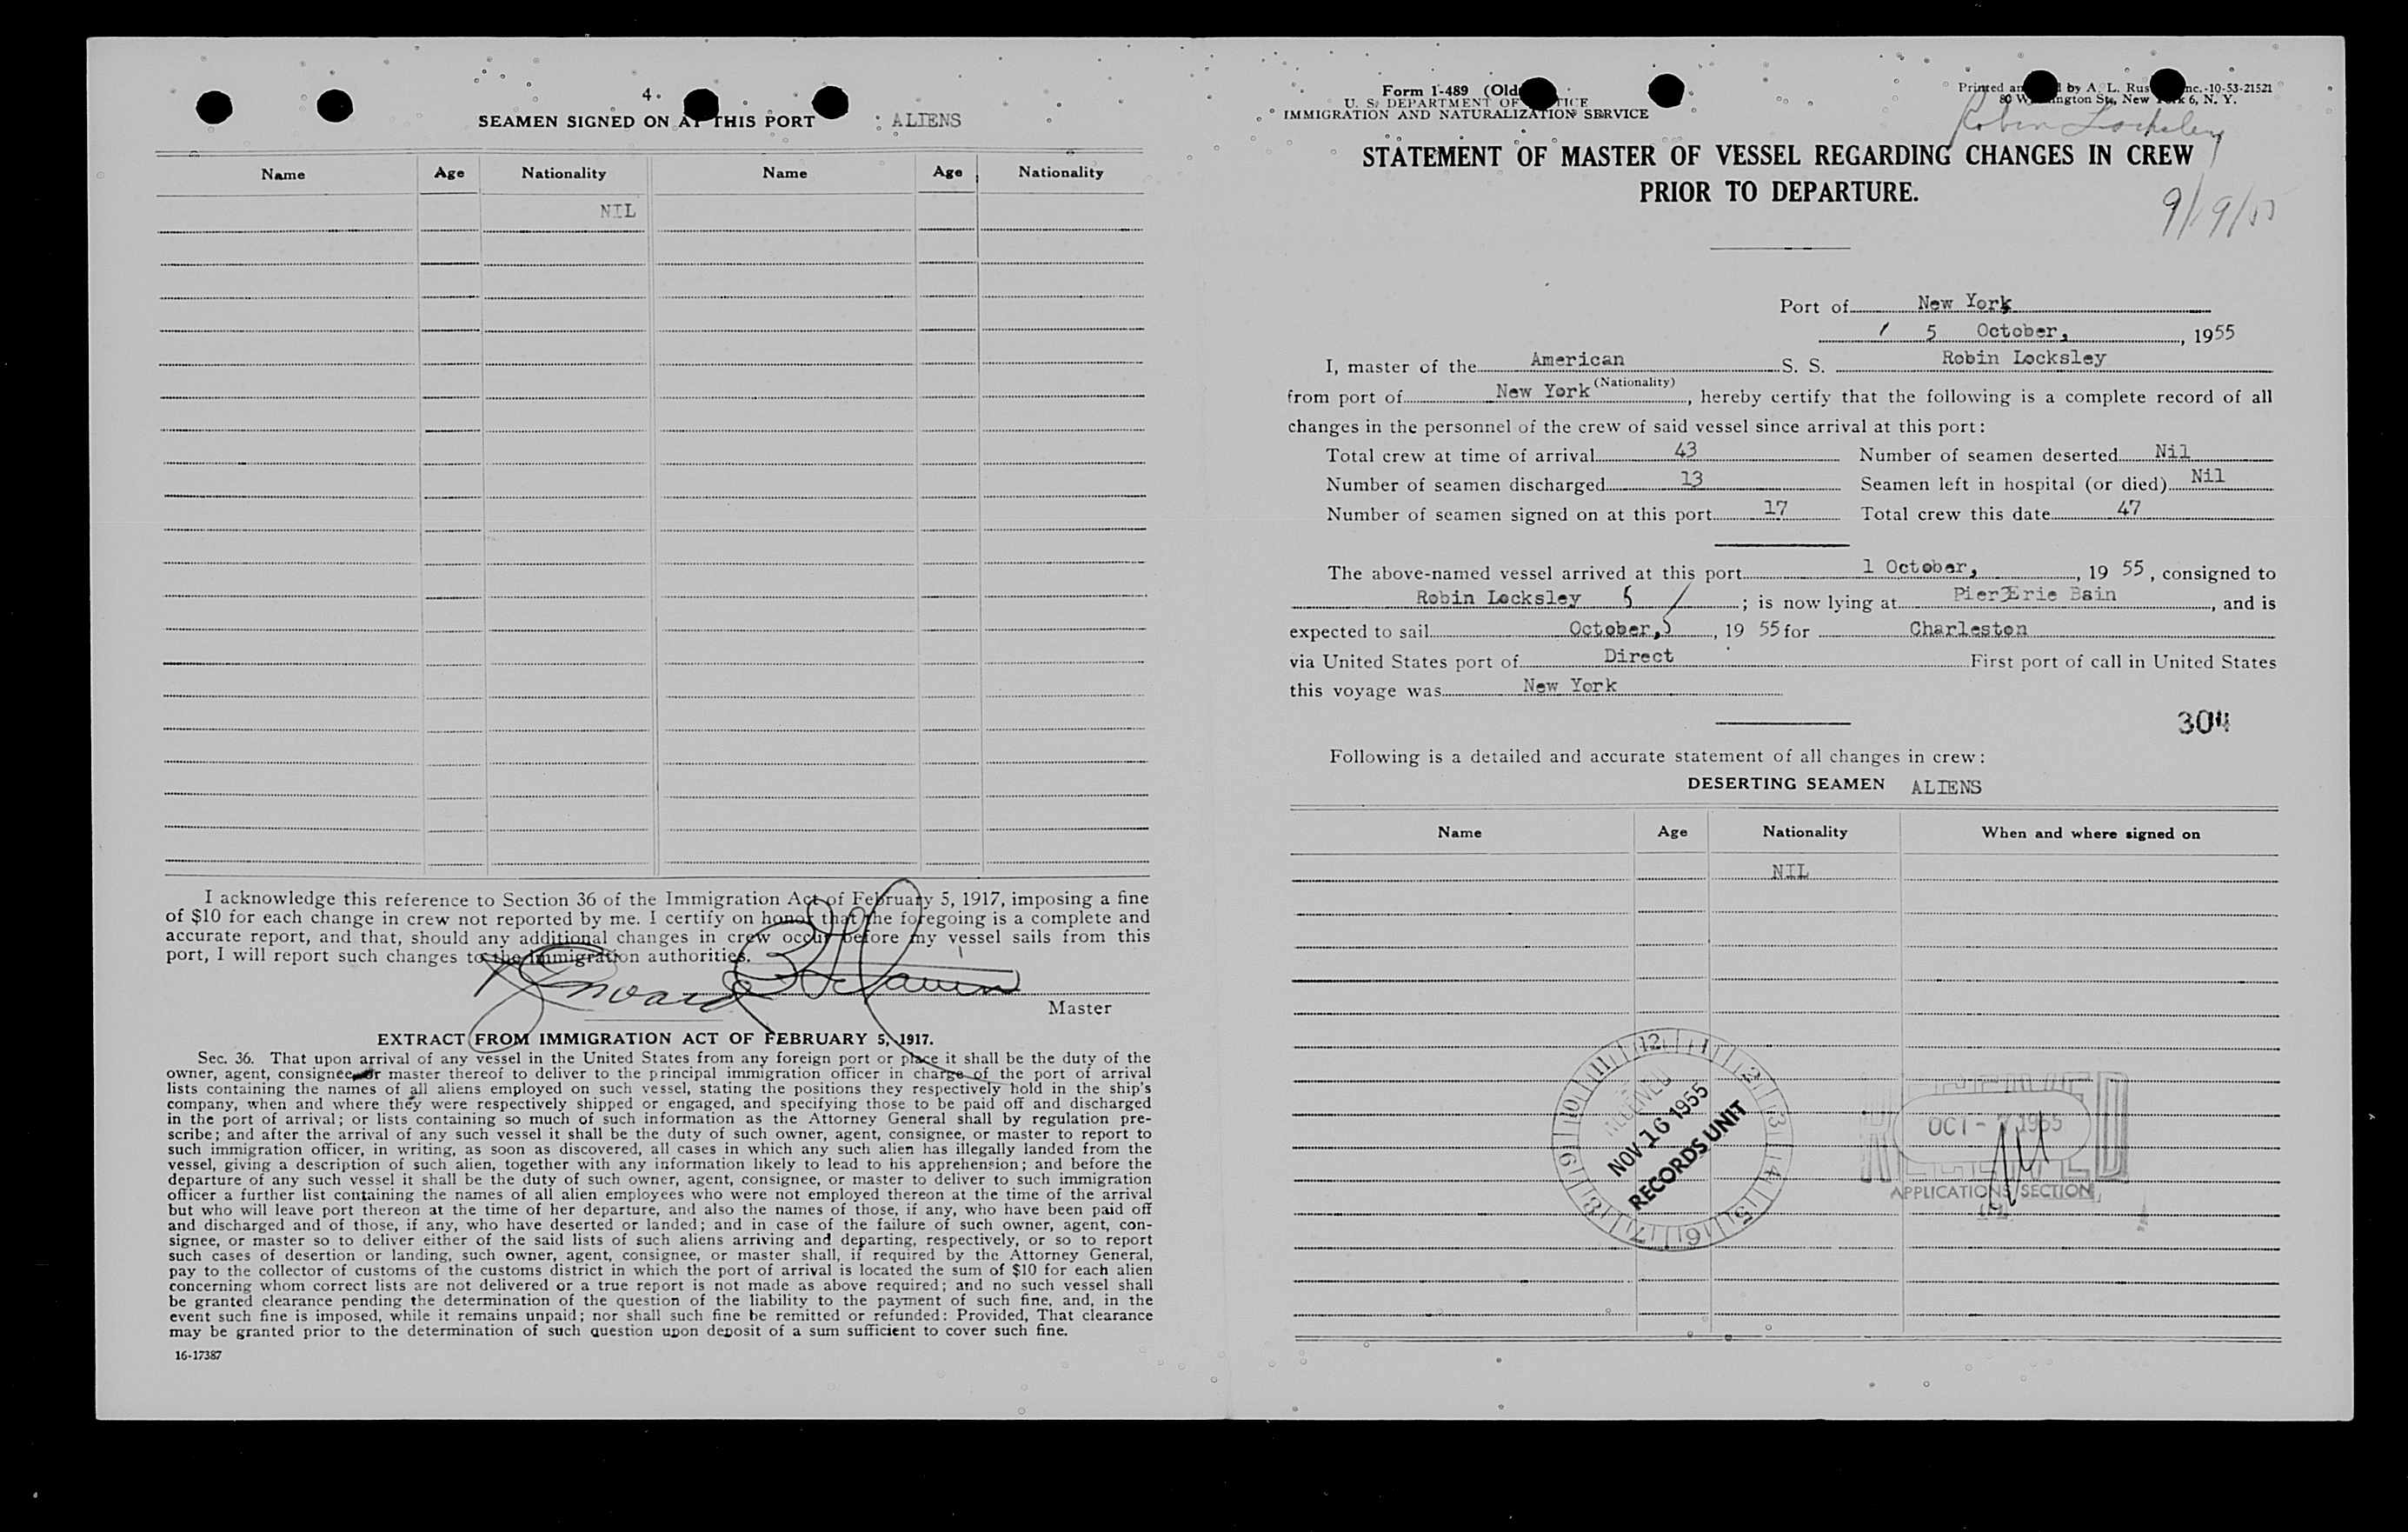 4.
SEAMEN SIGNED ON AT THIS PORT : ALIENS
Name Age Nationality Name Age Nationality
NIL
I acknowledge this reference to Section 36 of the Immigration Act of February 5, 1917, imposing a fine
of $10 for each change in crew not reported by me. I certify on honor that the foregoing is a complete and
accurate report, and that, should any additional changes in crew occur before my vessel sails from this
port, I will report such changes to the Immigration authorities.
Master
EXTRACT FROM IMMIGRATION ACT OF FEBRUARY 5, 1917.
Sec. 36. That upon arrival of any vessel in the United States from any foreign port or place it shall be the duty of the
owner, agent, consignee, or master thereof to deliver to the principal immigration officer in charge of the port of arrival
lists containing the names of all aliens employed on such vessel, stating the positions they respectively hold in the ship's
company, when and where they were respectively shipped or engaged, and specifying those to be paid off and discharged
in the port of arrival; or lists containing so much of such information as the Attorney General shall by regulation pre-
scribe; and after the arrival of any such vessel it shall be the duty of such owner, agent, consignee, or master to report to
such immigration officer, in writing, as soon as discovered, all cases in which any such alien has illegally landed from the
vessel, giving a description of such alien, together with any information likely to lead to his apprehension; and before the
departure of any such vessel it shall be the duty of such owner, agent, consignee, or master to deliver to such immigration
officer a further list containing the names of all alien employees who were not employed thereon at the time of the arrival
but who will leave port thereon at the time of her departure, and also the names of those, if any, who have been paid off
and discharged and of those, if any, who have deserted or landed; and in case of the failure of such owner, agent, con-
signee, or master so to deliver either of the said lists of such aliens arriving and departing, respectively, or so to report
such cases of desertion or landing, such owner, agent, consignee, or master shall, if required by the Attorney General,
pay to the collector of customs of the customs district in which the port of arrival is located the sum of $10 for each alien
concerning whom correct lists are not delivered or a true report is not made as above required; and no such vessel shall
be granted clearance pending the determination of the question of the liability to the payment of such fine, and, in the
event such fine is imposed, while it remains unpaid; nor shall such fine be remitted or refunded: Provided, That clearance
may be granted prior to the determination of such question upon deposit of a sum sufficient to cover such fine.
16-17387
Form 1-489 (Old
U. S. DEPARTMENT OF
IMMIGRATION AND NATURALIZATION SERVICE
Printed by A. L. Rus nc.-10-53-21521
80 W ngton Sts, New York 6, N. Y.
Robin Locksley
STATEMENT OF MASTER OF VESSEL REGARDING CHANGES IN CREW
PRIOR TO DEPARTURE.
9/19/55
Port of New York
5 October, 1955
I, master of the American S. S. Robin Locksley
(Nationality)
from port of New York, hereby certify that the following is a complete record of all
changes in the personnel of the crew of said vessel since arrival at this port:
Total crew at time of arrival 43 Number of seamen deserted Nil
Number of seamen discharged 13 Seamen left in hospital (or died) Nil
Number of seamen signed on at this port 17 Total crew this date 47
The above-named vessel arrived at this port 1 October, 19 55, consigned to
Robin Locksley 5; is now lying at Pier Erie Bain, and is
expected to sail October, 5, 19 55 for Charleston
via United States port of Direct First port of call in United States
this voyage was New York
304
Following is a detailed and accurate statement of all changes in crew:
DESERTING SEAMEN ALIENS
Name Age Nationality When and where signed on
NIL
RECEIVED
NOV 16 1955
RECORDS UNIT
OCT - 7 1955
APPLICATIONS SECTION